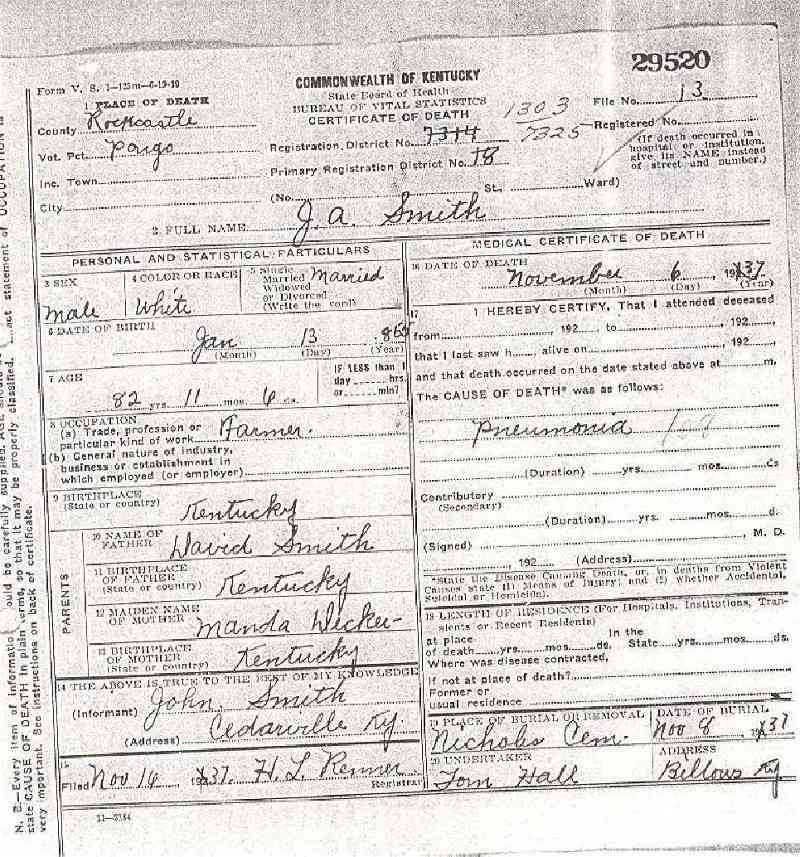 29520
Form V. S. 1—125m—6-19-19
COMMONWEALTH OF KENTUCKY
State Board of Health
BUREAU OF VITAL STATISTICS
CERTIFICATE OF DEATH
1 PLACE OF DEATH
County Rockcastle
Vot. Pct. Pongo
Inc. Town
City
1303
7325
File No. 13
Registered No.
(If death occurred in a hospital or institution, give its NAME instead of street and number.)
Registration District No. 7314
Primary Registration District No. 18
(No. St., Ward)
2. FULL NAME J. A. Smith
PERSONAL AND STATISTICAL PARTICULARS
3 SEX
Male
4 COLOR OR RACE
White
5 Single
Married
Widowed
or Divorced
(Write the word)
Married
6 DATE OF BIRTH
Jan 13
(Month) (Day) (Year)
7 AGE
82 yrs. 11 mos. 6 ds.
IF LESS than 1
day hrs.
or min?
8 OCCUPATION
(a) Trade, profession or
particular kind of work Farmer.
(b) General nature of industry,
business or establishment in
which employed (or employer)
9 BIRTHPLACE
(State or country)
Kentucky
PARENTS
10 NAME OF
FATHER David Smith
11 BIRTHPLACE
OF FATHER
(State or country) Kentucky
12 MAIDEN NAME
OF MOTHER Manda
13 BIRTHPLACE
OF MOTHER
(State or country) Kentucky
14 THE ABOVE IS TRUE TO THE BEST OF MY KNOWLEDGE
(Informant) John Smith
(Address) Cedarville Ky
15
Filed Nov 16 37. H. L. Renner
Registrar
11—3184
MEDICAL CERTIFICATE OF DEATH
16 DATE OF DEATH
November 6, 37
(Month) (Day) (Year)
17 I HEREBY CERTIFY, That I attended deceased
from , 192 , to , 192 ,
that I last saw h alive on , 192 ,
and that death occurred on the date stated above at m.
The CAUSE OF DEATH* was as follows:
Pneumonia
(Duration) yrs. mos. ds
Contributory
(Secondary)
(Duration) yrs. mos. d.
(Signed) , M. D.
, 192 (Address)
*State the Disease Causing Death, or, in deaths from Violent
Causes state (1) Means of Injury; and (2) whether Accidental,
Suicidal or Homicidal.
18 LENGTH OF RESIDENCE (For Hospitals, Institutions, Tran-
sients or Recent Residents)
at place In the
of death yrs. mos. ds. State yrs. mos. ds.
Where was disease contracted,
If not at place of death?
Former or
usual residence
19 PLACE OF BURIAL OR REMOVAL
Nichols Cem.
DATE OF BURIAL
Nov 8, 37
20 UNDERTAKER
Tom Hall
ADDRESS
Billows Ky
N. B.—Every item of information should be carefully supplied. AGE should
state CAUSE OF DEATH in plain terms, so that it may be properly classified. Exact statement of OCCUPATION is
very important. See instructions on back of certificate.